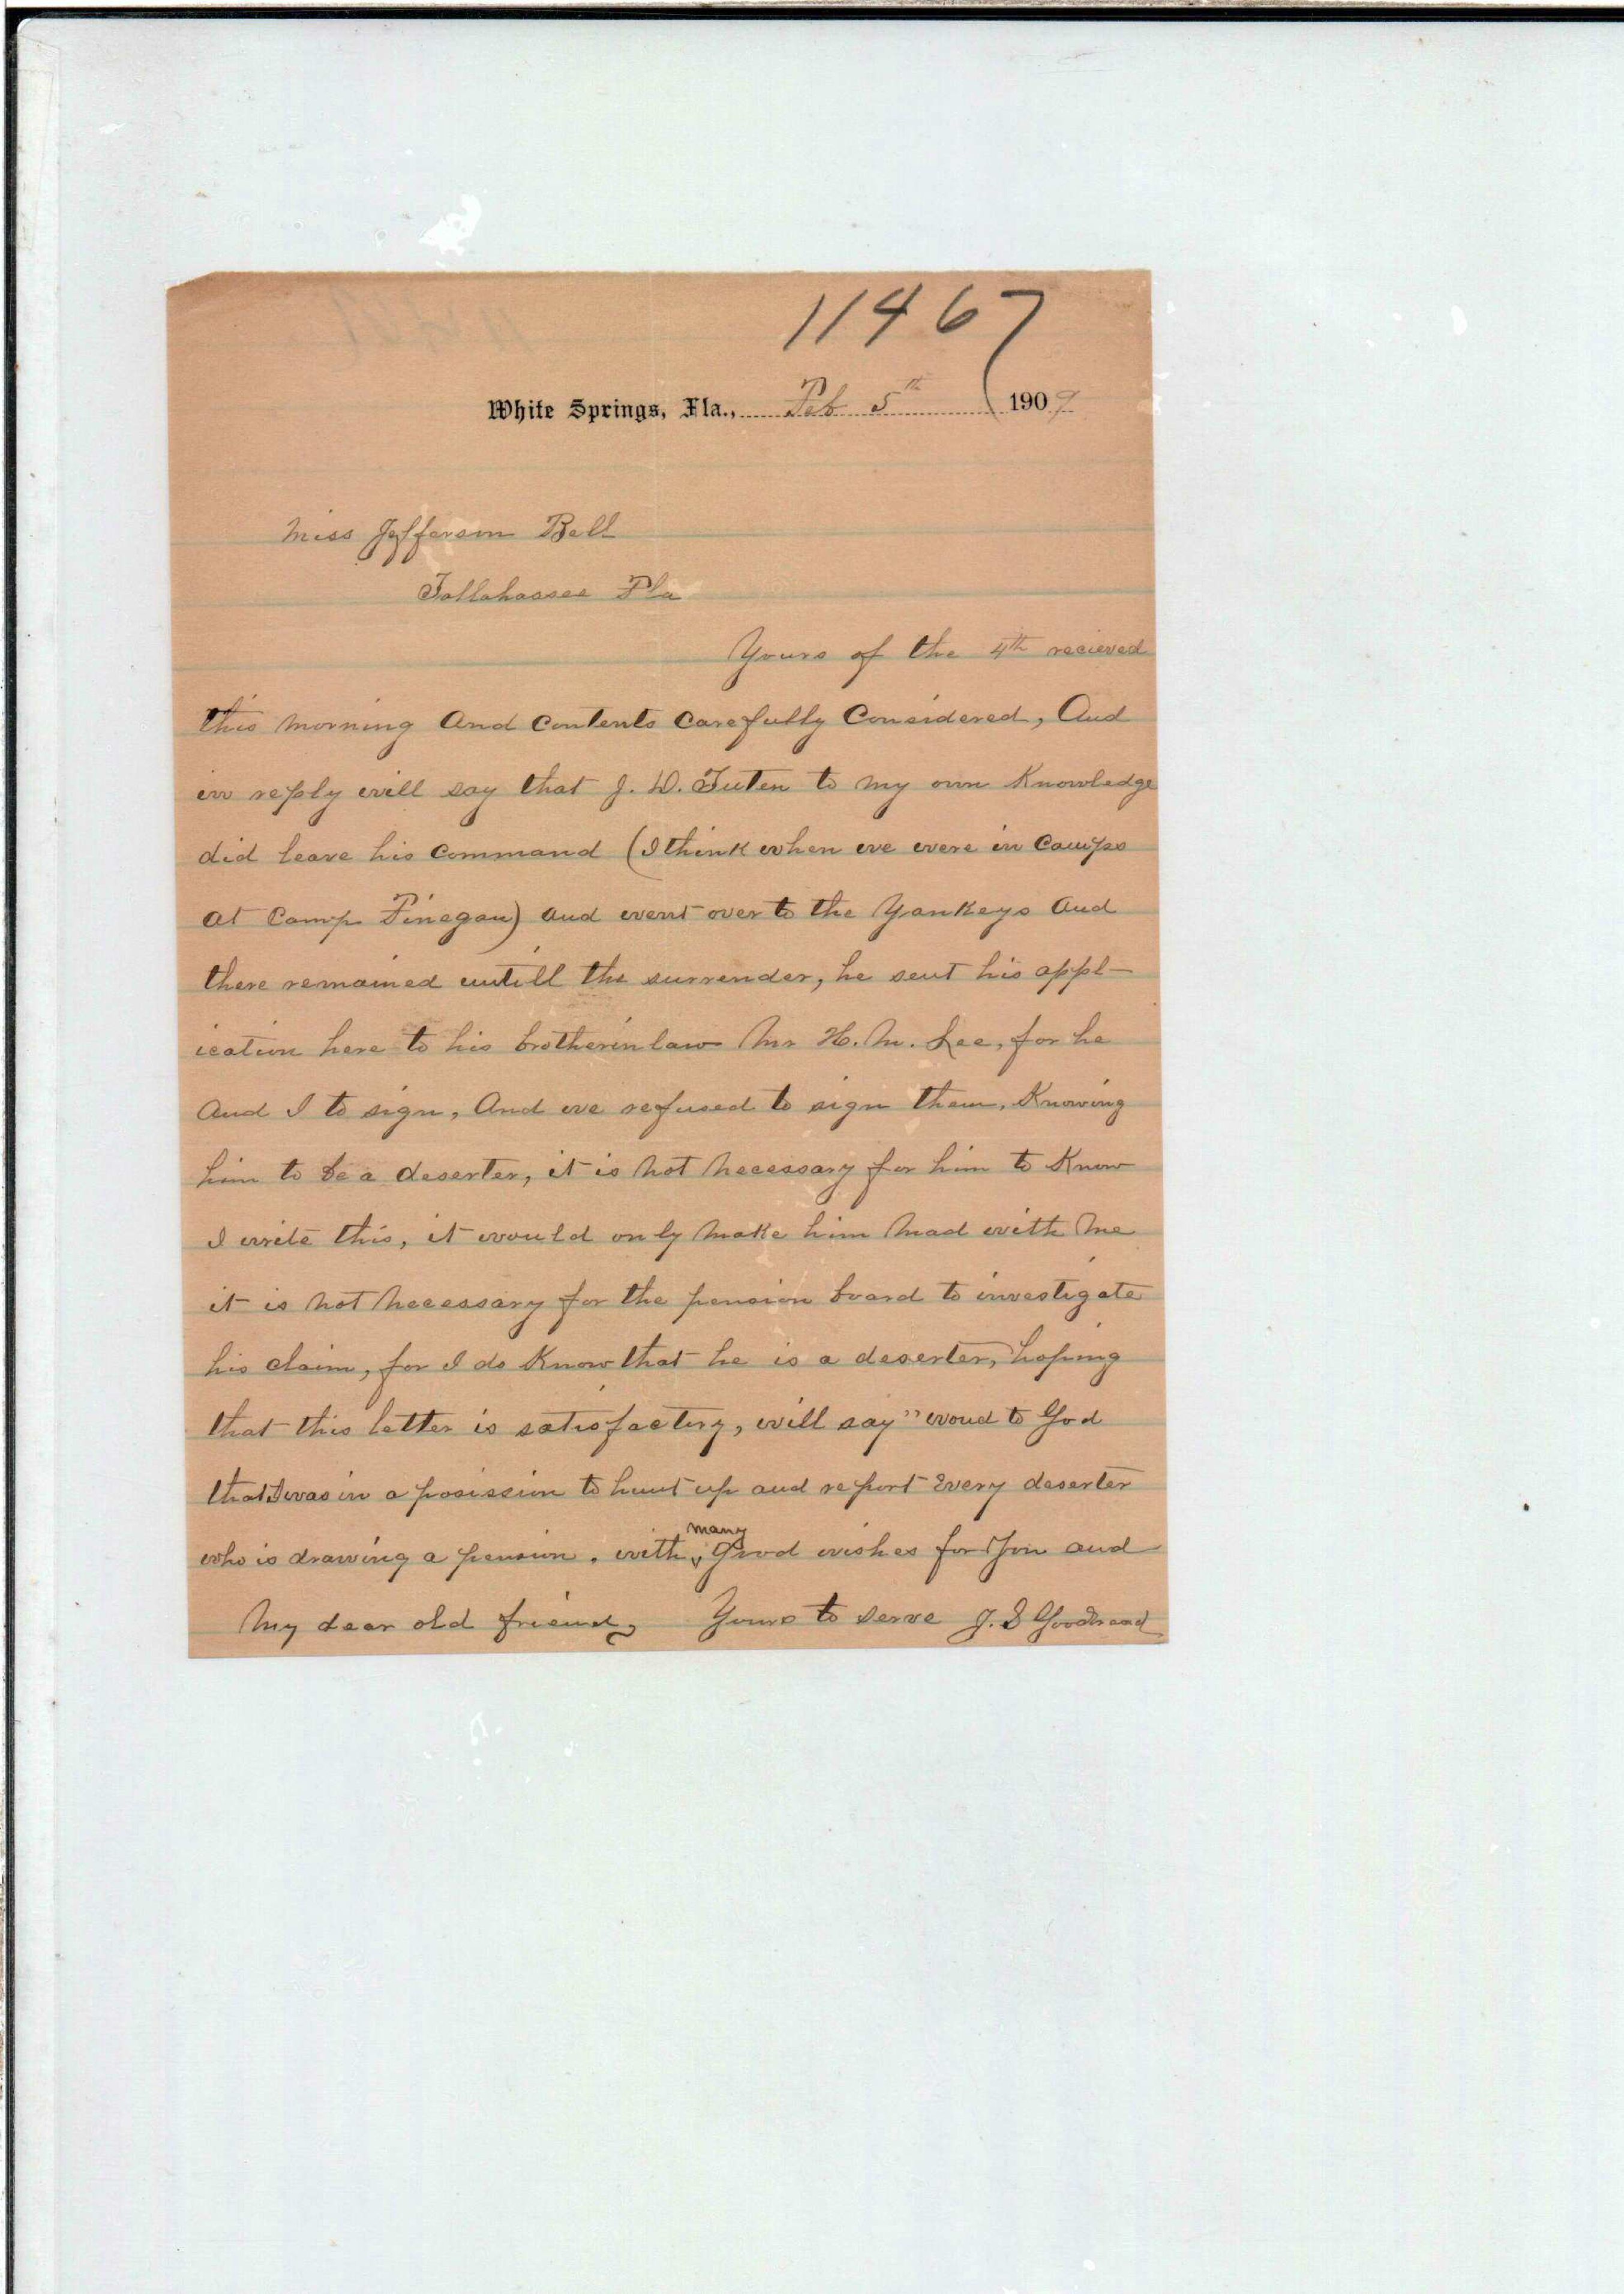 11467
White Springs, Fla., Feb 5th 1909
Miss Jefferson Bell
Tallahassee Fla
Yours of the 4th recieved
this morning And Contents Carefully Considered, And
in reply will say that J. D. Tuten to my own Knowledge
did leave his Command (I think when we were in Camps
at Camp Finegan) and went over to the Yankeys and
there remained untill the surrender, he sent his appl-
ication here to his brotherinlaw Mr H. M. Lee, for he
and I to sign, And we refused to sign them, Knowing
him to be a deserter, it is not necessary for him to Know
I write this, it would only make him mad with me
it is not necessary for the pension board to investigate
his claim, for I do Know that he is a deserter, hoping
that this letter is satisfactory, will say" woud to God
that I was in a posission to hunt up and report Every deserter
who is drawing a pension. with many Good wishes for You and
My dear old friend, Yours to serve J. S Goodbread